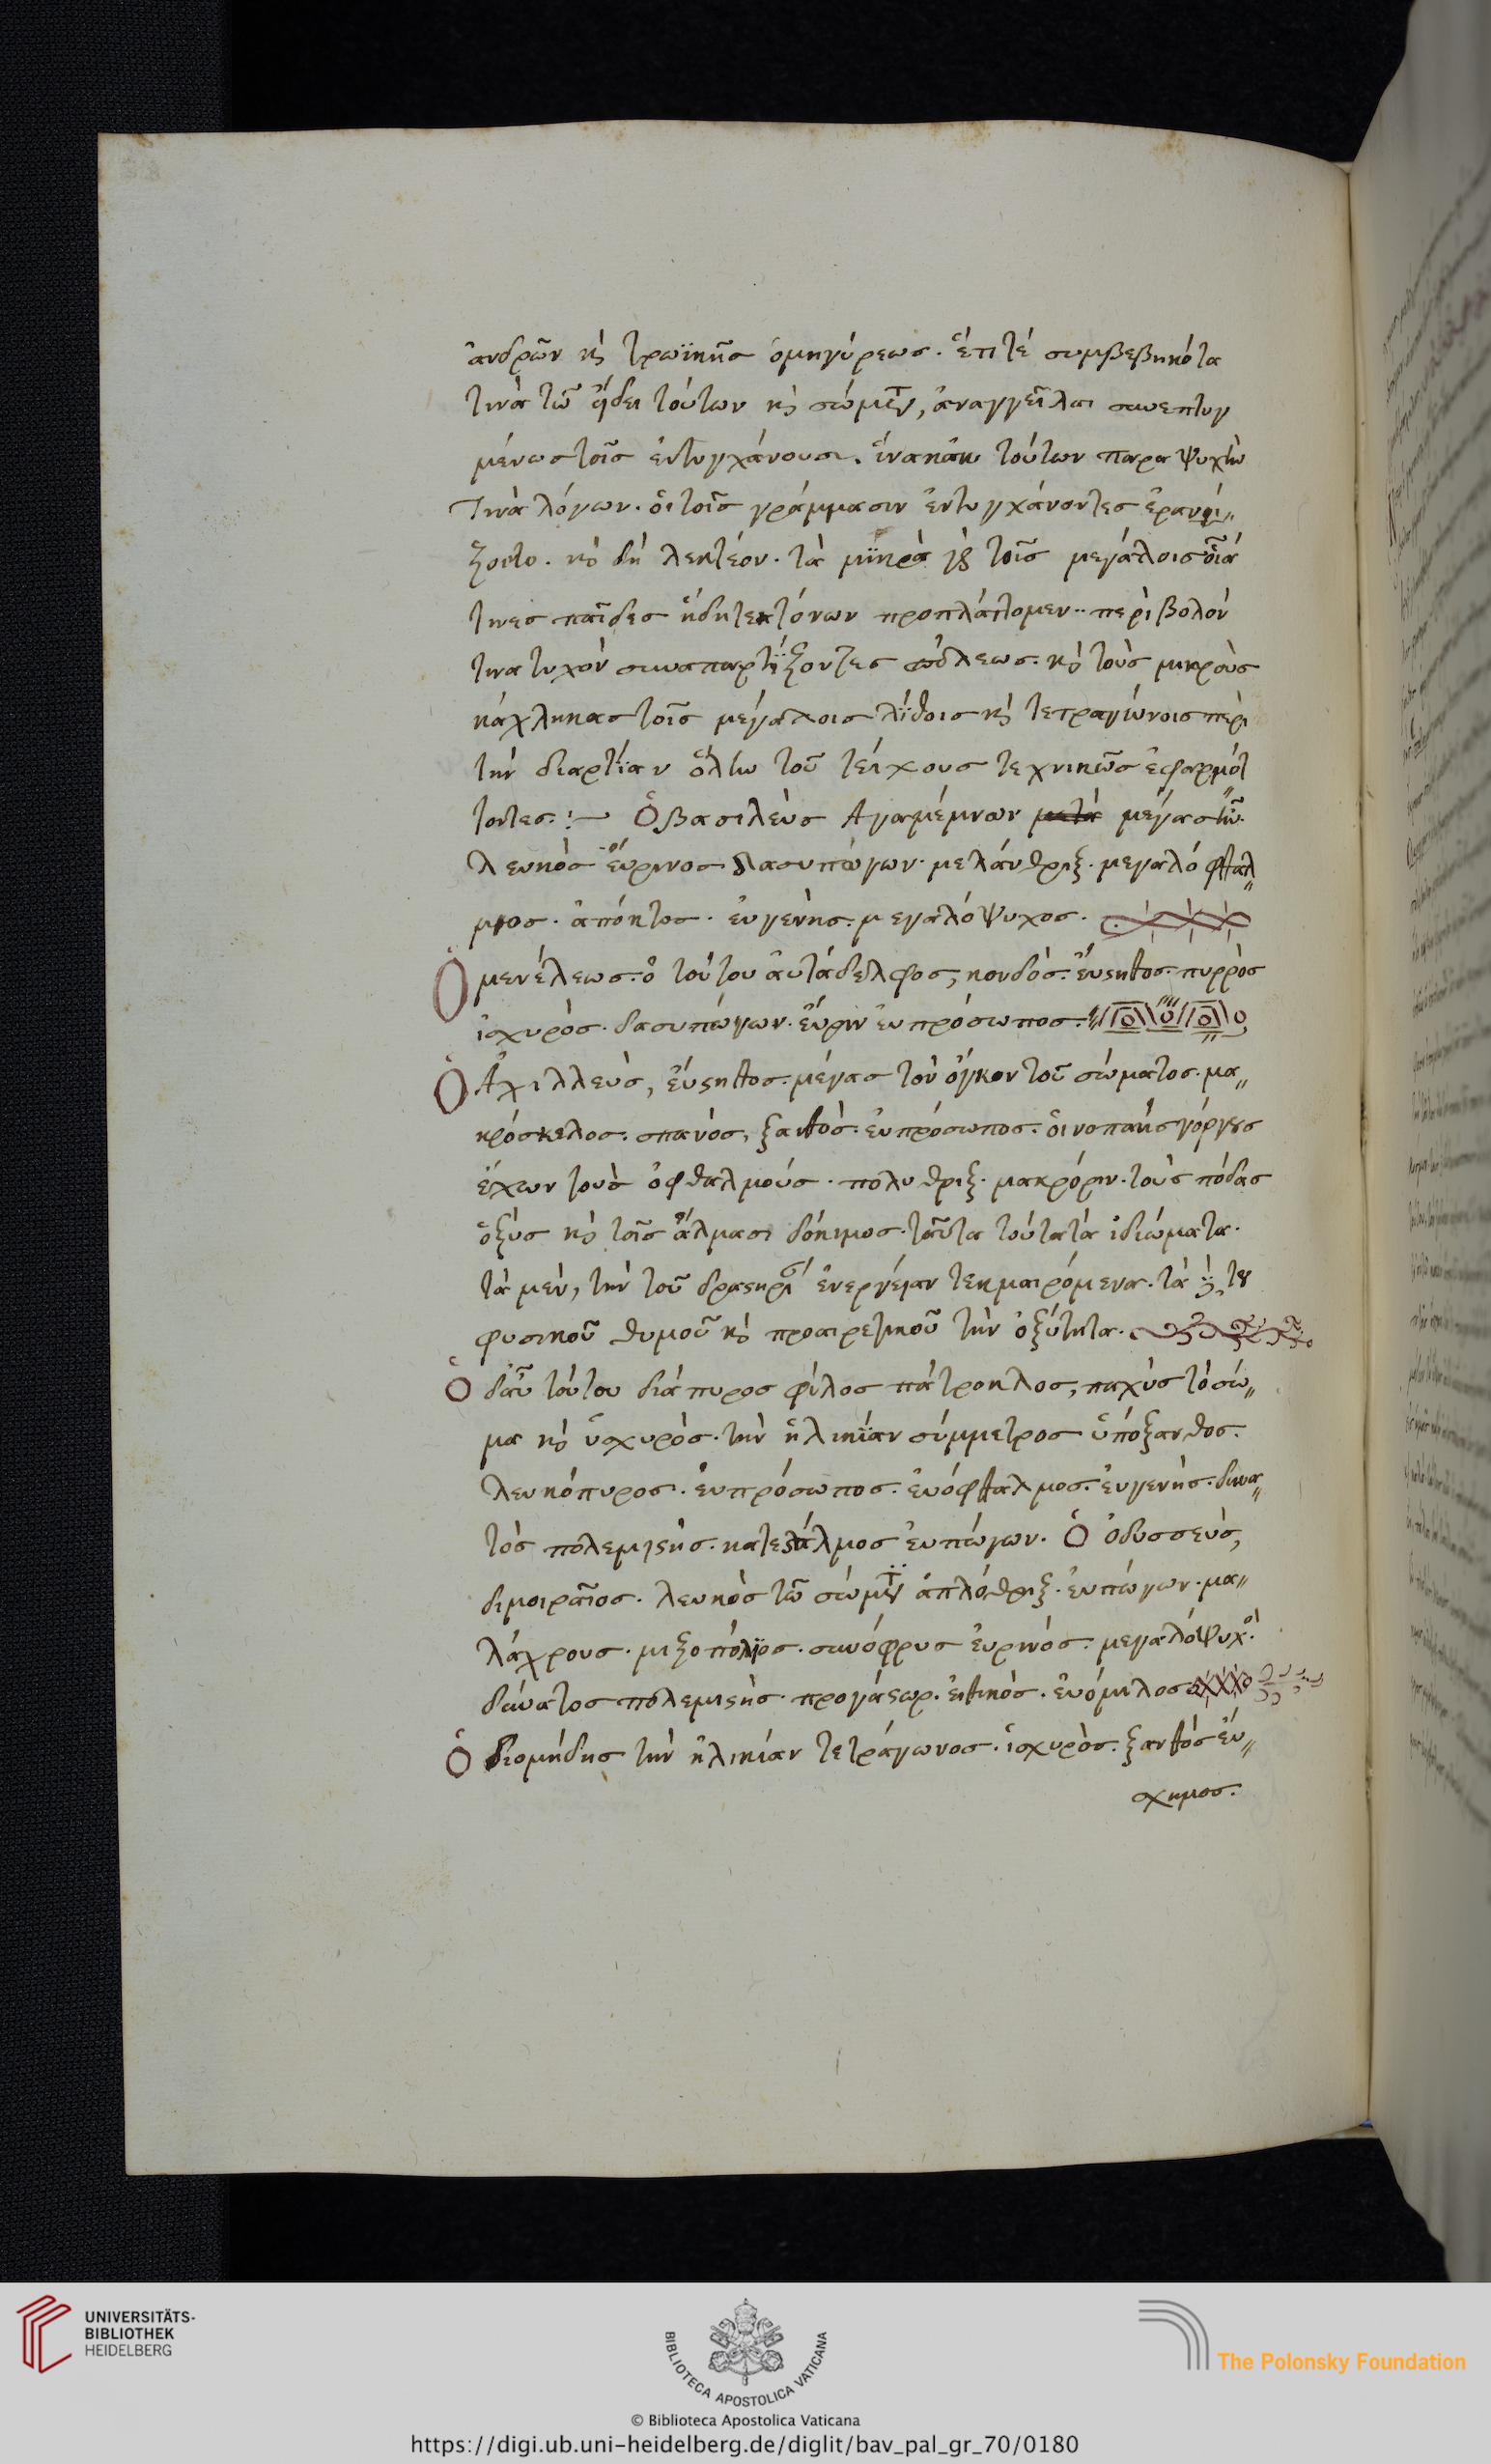 ἀνδρῶν κ τρωϊκῆς ὁμηγύρεως. ἔτι τέ συμβεβηκότα
τινὰ τῶ εἴδει τούτων κ σώματι, ἀναγγεῖλαι συνεπτυγ
μένως τοῖς ἐντυγχάνουσι. ἵνα κἀκ τούτων παραψυχὴν
τινὰ λόγων. οἱ τοῖς γράμμασιν ἐντυγχάνοντες ἐρανί„
ζοιτο. κ δὴ λεκτέον. τὰ μϊκρὰ τοῖς μεγάλοις οἷά
τινες παῖδες ἤδη τεκτόνων προπλάττομεν.. περὶβολόν
τινα τυχὸν συναπαρτίζοντες πόλεως. κ τοὺς μικρους
κάχληκας τοῖς μεγάλοις λίθοις κ τετραγώνοις περὶ
τὴν διαρτίαν ὅλην τοῦ τείχους τεχνικῶς ἐφαρμότ
τοντες: Ὁ βασιλεὺς Αγαμέμνων μετὰ μέγας ἦν.
λευκὸς εὔρινος δασυπώγων. μελάνθριξ. μεγαλόφθαλ„
μος. ἀπόητος. ἐυγενὴς. μεγαλόψυχος.
Ὁ μενέλεως. ὁ τούτου ἀυτάδελφος, κονδὸς. ἔυστηθος. πυρρὸς
ἰσχυρὸς. δασυπώγων. ἔυριν ἐυπρόσωπος.
Ὁ Ἀχιλλεὺς, ἔυστηθος. μέγας τὸν ὄγκον τοῦ σώματος. μα„
κρόσκελος. σπανὸς, ξανθὸς. ἐυπρόσωπος. οἰνοπαὴς γόργους
ἔχων τοὺς ὀφθαλμούς. πολυθριξ. μακρόριν. τοὺς πόδας
ὀξὺς κ τοῖς ἅλμασι δόκιμος. ταῦτα τούτα τὰ ἰδιώματα.
τὰ μὲν, τὴν τοῦ δραστηρί ἐνεργείαν τεκμαιρόμενα. τὰ τοῦ
φυσικοῦ θυμοῦ κ προαιρετικοῦ τὴν ὀξύτητα.
Ὁ δαῦ τούτου διάπυρος φίλος πάτροκλος, παχὺς τὸ σώ„
μα κ ἰσχυρὸς. τὴν ἡλικΐαν σύμμετρος ὑπόξανθος.
λευκόπυρος. ἐυπρόσωπος. ἐυόφθαλμος. ἐυγενὴς. δυνα„
τὸς πολεμιστὴς. κατεστάλμος ἐυπώγων. Ὁ ὀδυσσεὺς,
διμοιραῖος. λευκὸς τῶ σώματι ἁπλόθριξ. ἐυπώγων. μα„
λάχρους. μιξοπόλϊος. σανόφρυς ἐυρινὸς. μεγαλόψυχ.
δύνατος πολεμιστὴς. προγάστωρ. ἐυόμιλος
Ὁ διομήδης τὴν ἡλικίαν τετράγωνος. ἰσχυρὸς. ξανθὸς ἐύ„
σχημος.
UNIVERSITÄTS-
BIBLIOTHEK
HEIDELBERG
BIBLIOTECA APOSTOLICA VATICANA
The Polonsky Foundation
© Biblioteca Apostolica Vaticana
https://digi.ub.uni-heidelberg.de/diglit/bav_pal_gr_70/0180